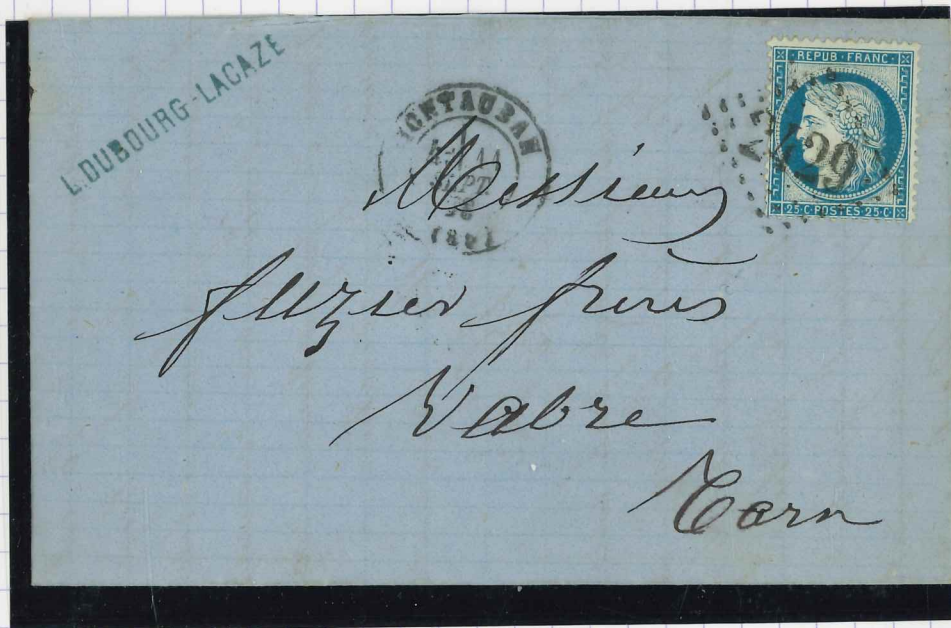 L. DUBOURG-LACAZE
MONTAUBAN
SEPT
(80)
REPUB · FRANC ·
2429
25 · C · POSTES · 25 · C
Messieurs
fuzier frères
Vabre
Tarn